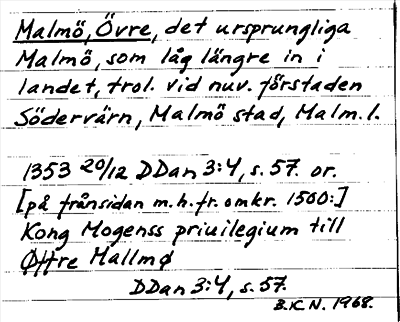 Malmö, Övre, det ursprungliga
Malmö, som låg längre in i
landet, trol. vid nuv. förstaden
Södervärn, Malmö stad, Malm. l.
1353 20/12 DDan 3:4, s. 57. or.
[på frånsidan m. h. fr. omkr. 1500:]
Kong Mogenss priuilegium till
Øffre Mallmø
DDan 3:4, s. 57.
B.K.N. 1968.